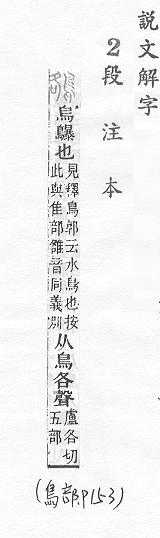 說文解字
2段注本
鳥䴐也見釋鳥郭云水鳥也按此與隹部雒音同義別从鳥各聲盧各切五部
(鳥部P153)